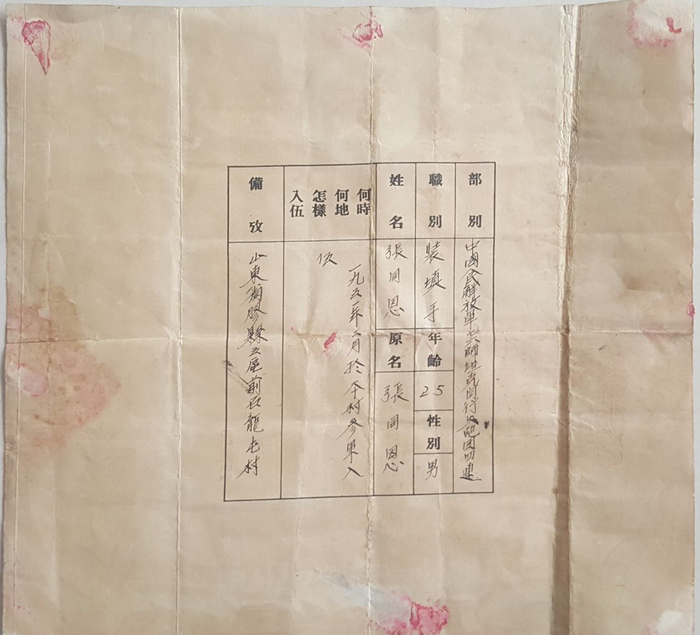 部別
中國人民解放軍
職別
裝填手
年齡
25
性別
男
姓名
張同恩
原名
張同恩
何時
何地
怎樣
入伍
一九五一年二月於本村參軍入
伍
備攷
山東 縣五區前 龍屯村